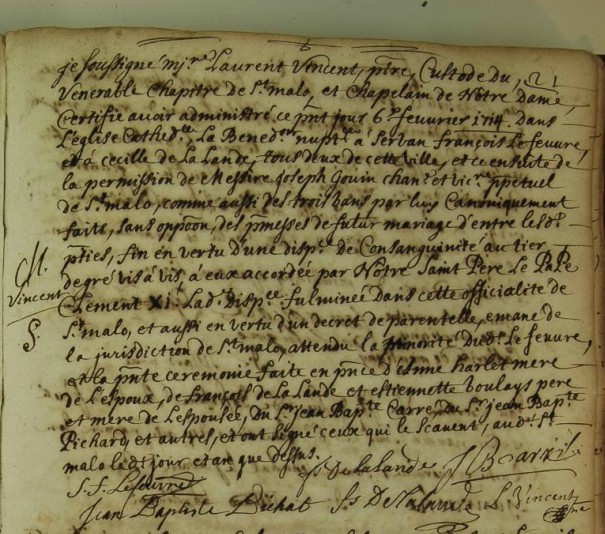 je soussigné mjre Laurent Vincent, ptre, Custode du,
Venerable Chapitre de St malo, et Chapelain de Notre Dame,
Certifie avoir administré ce pnt jour 6e fevurier 1714. Dans
L'eglise Cathedlle La Benedon nuptlle a Servan François Lefeuvre,
et a cecille de La Lande, tous deux de cette ville, et ce ensuite de
la permission de Messire Joseph Gouin chane et vicre ppetuel
de St malo, comme aussi des trois bans par luy Canoniquement
faits, sans oppoon, des pmesses de futur mariage d'entre lesds
pties, fin en vertu d'une dispce De Consanguinité au tier
degré vis a vis, a eux accordée par Notre Saint Pere Le Pape
Clement XI. Ladte Dispce fulminée Dans cette officialité de
St malo, et aussi en vertu d'un decret de parentelle, emané de
la jurisdiction de St malo, attendu la minorité Dud. Lefeuvre,
et la pnte ceremonie faite en pnce d'Anne harlet mere
de L'espoux, de François de La Lande et estiennette boulays pere
et mere de L'espousée, du Sr jean Bapte Carré, du Sr jean Bapte
Pichard, et autres, et ont signé ceux qui le scavent, aud. St
malo led. jour et an que dessus.
M.
Vincent
S.
S. F. Lefeuvre
fs De la lande J B Carré
Jean Baptiste Pichat L. Vincent